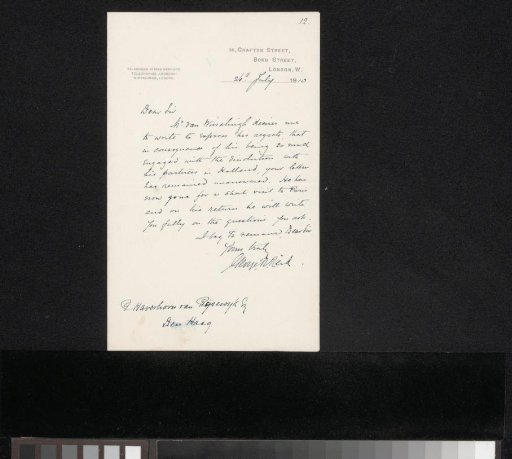 12.
14, GRAFTON STREET,
BOND STREET,
LONDON, W.
TELEGRAPHIC ADDRESS:
LONDON.
26th July 1910
Dear Sir
Mr van Wisselingh desires me
to write to express his regrets that
in consequence of his being so much
engaged with the dissolution with
his partners in Holland, your letter
has remained unanswered. He has
now gone for a short visit to Paris
and on his return he will write
you fully on the questions you ask.
I beg to remain Dear Sir
Yours truly
George R Reid.
P. Haverkorn van Rijsewijk Esq
Den Haag